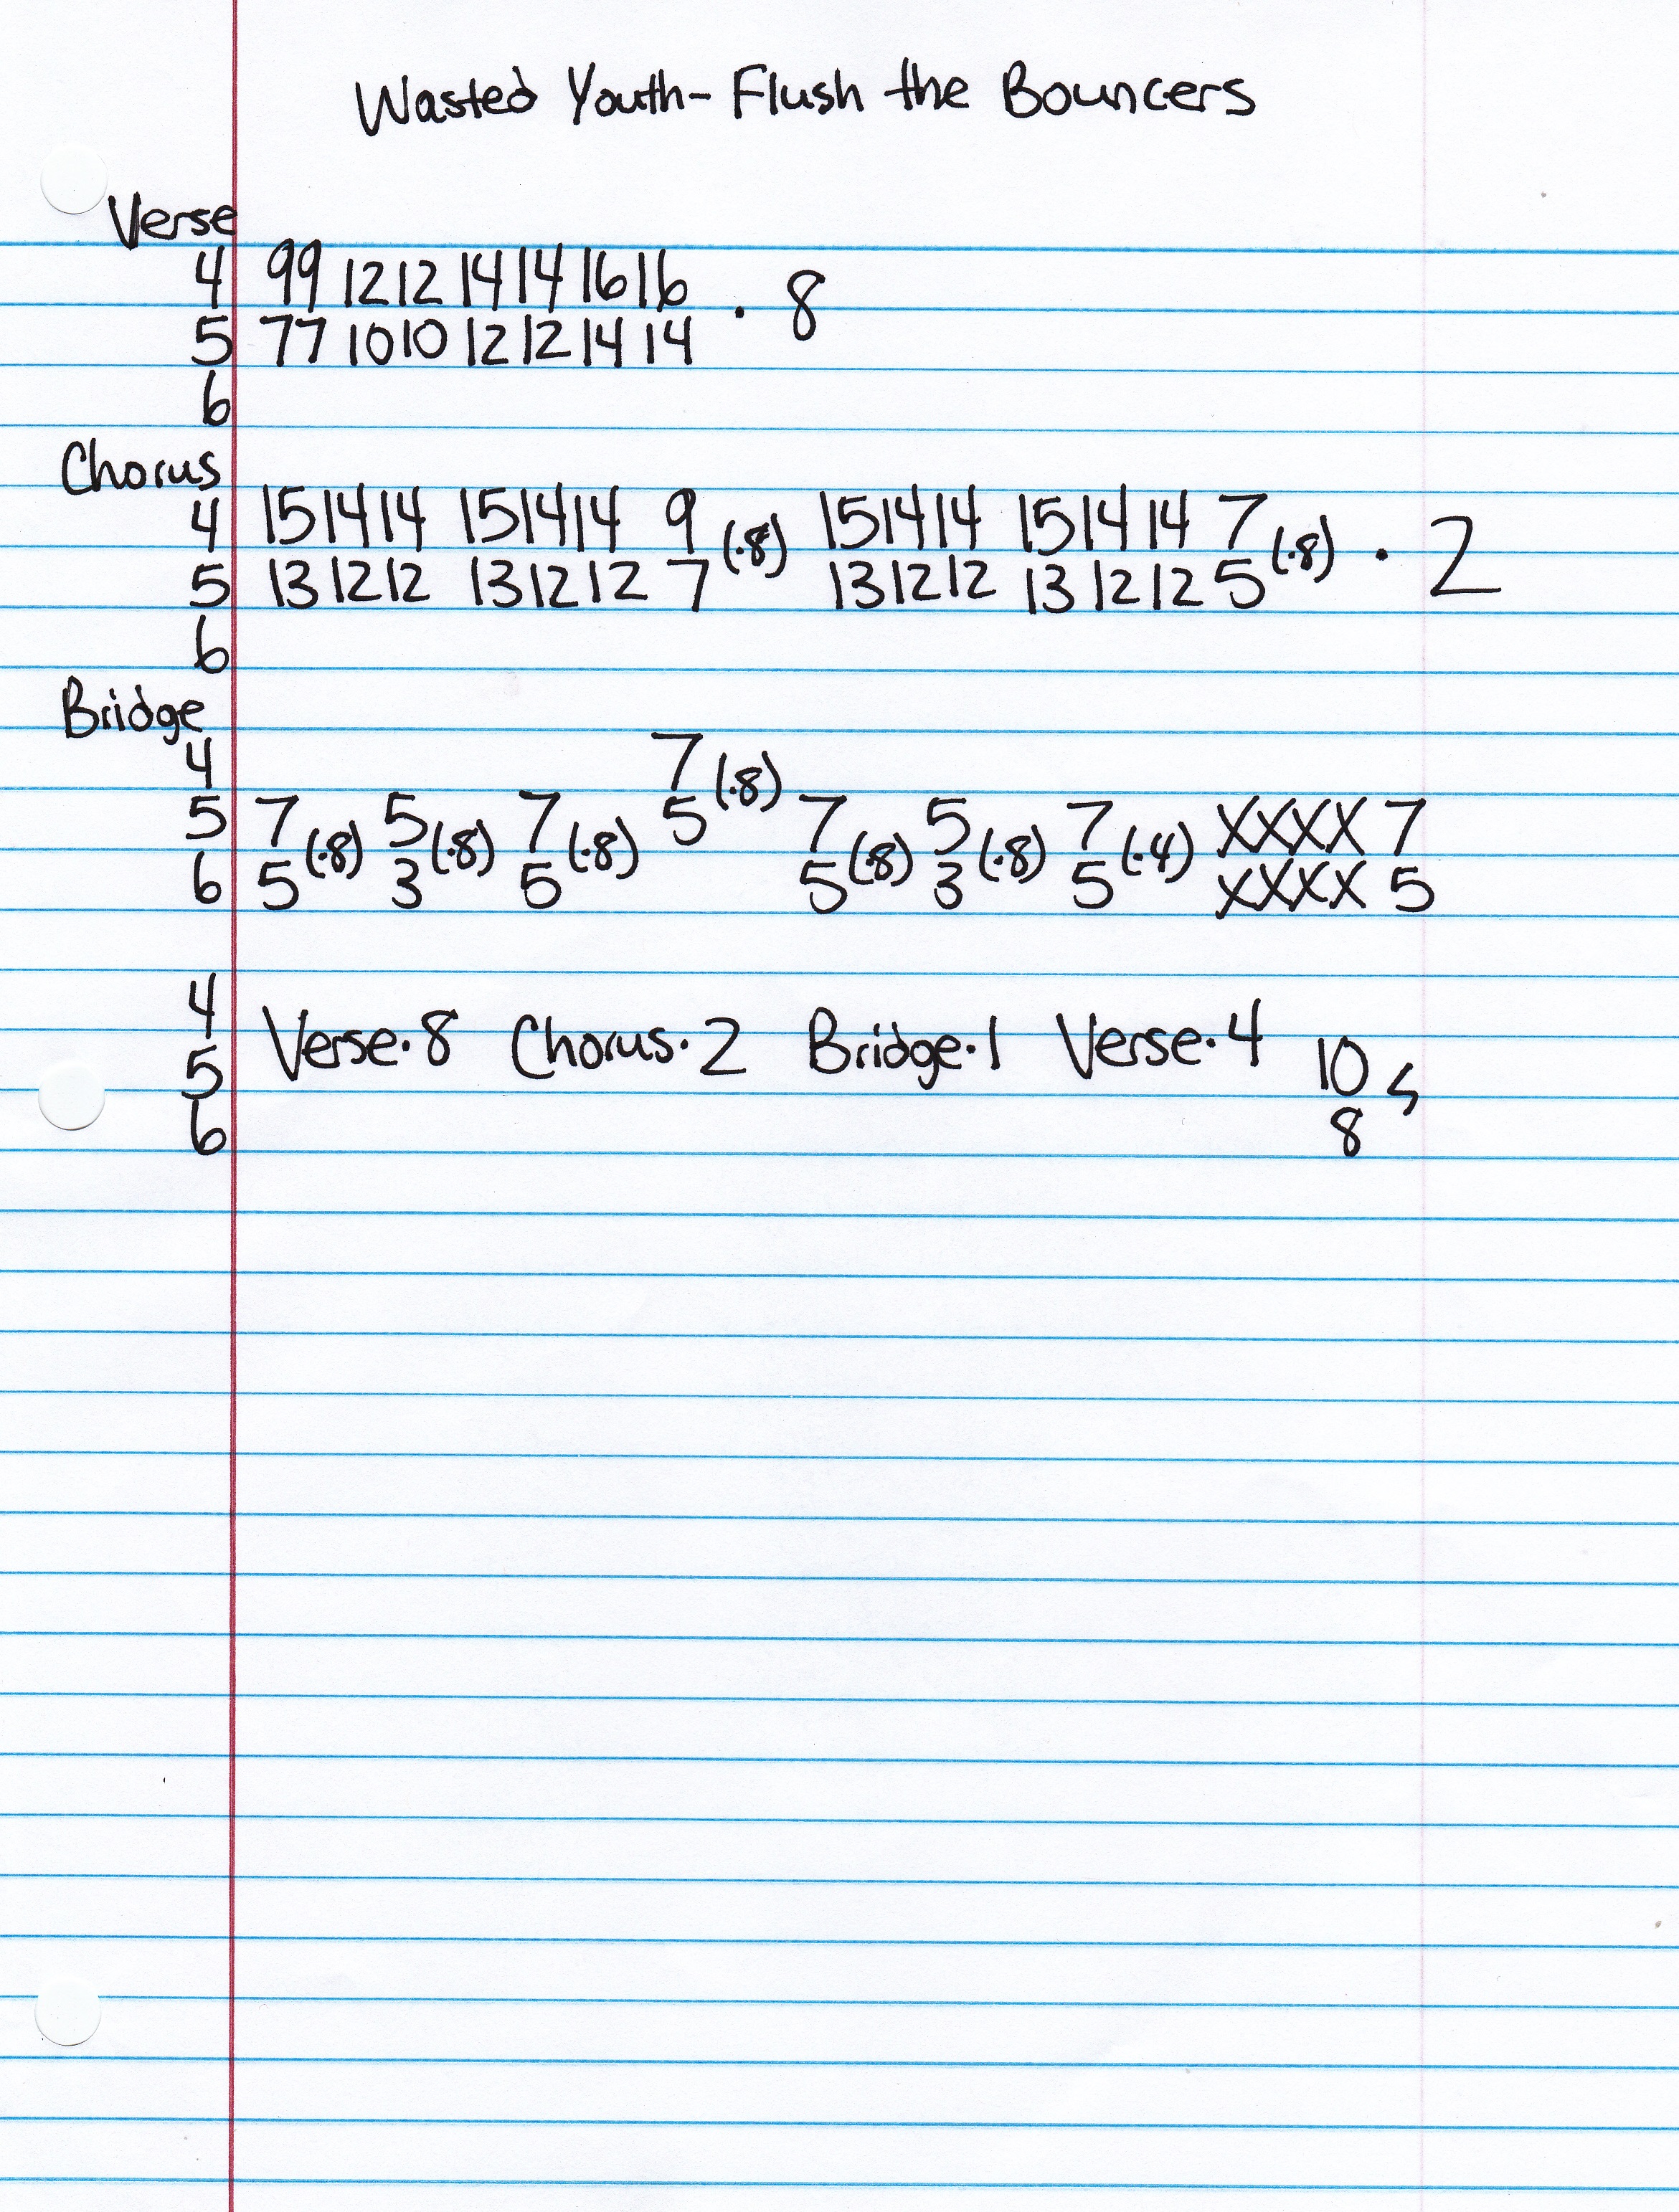 Wasted Youth- Flush the Bouncers
Verse
4 99 12 12 14 14 16 16 · 8
5 77 10 10 12 12 14 14
6
Chorus
4 15 14 14 15 14 14 9 (·8) 15 14 14 15 14 14 7 (·8) · 2
5 13 12 12 13 12 12 7 13 12 12 13 12 12 5
6
Bridge
4 7 (·8)
5 7 (·8) 5 (·8) 7 (·8) 5 7 (·8) 5 (·8) 7 (·4) XXXX 7
6 5 3 5 5 3 5 XXXX 5
4
5 Verse·8 Chorus·2 Bridge·1 Verse·4 10
6 8